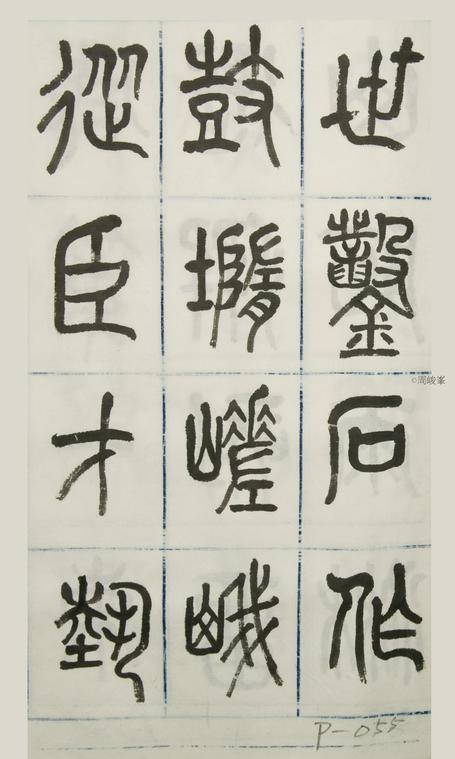 世鑿石作
鼓隳嵯峨
從臣才埶
©周峻峯
P-055